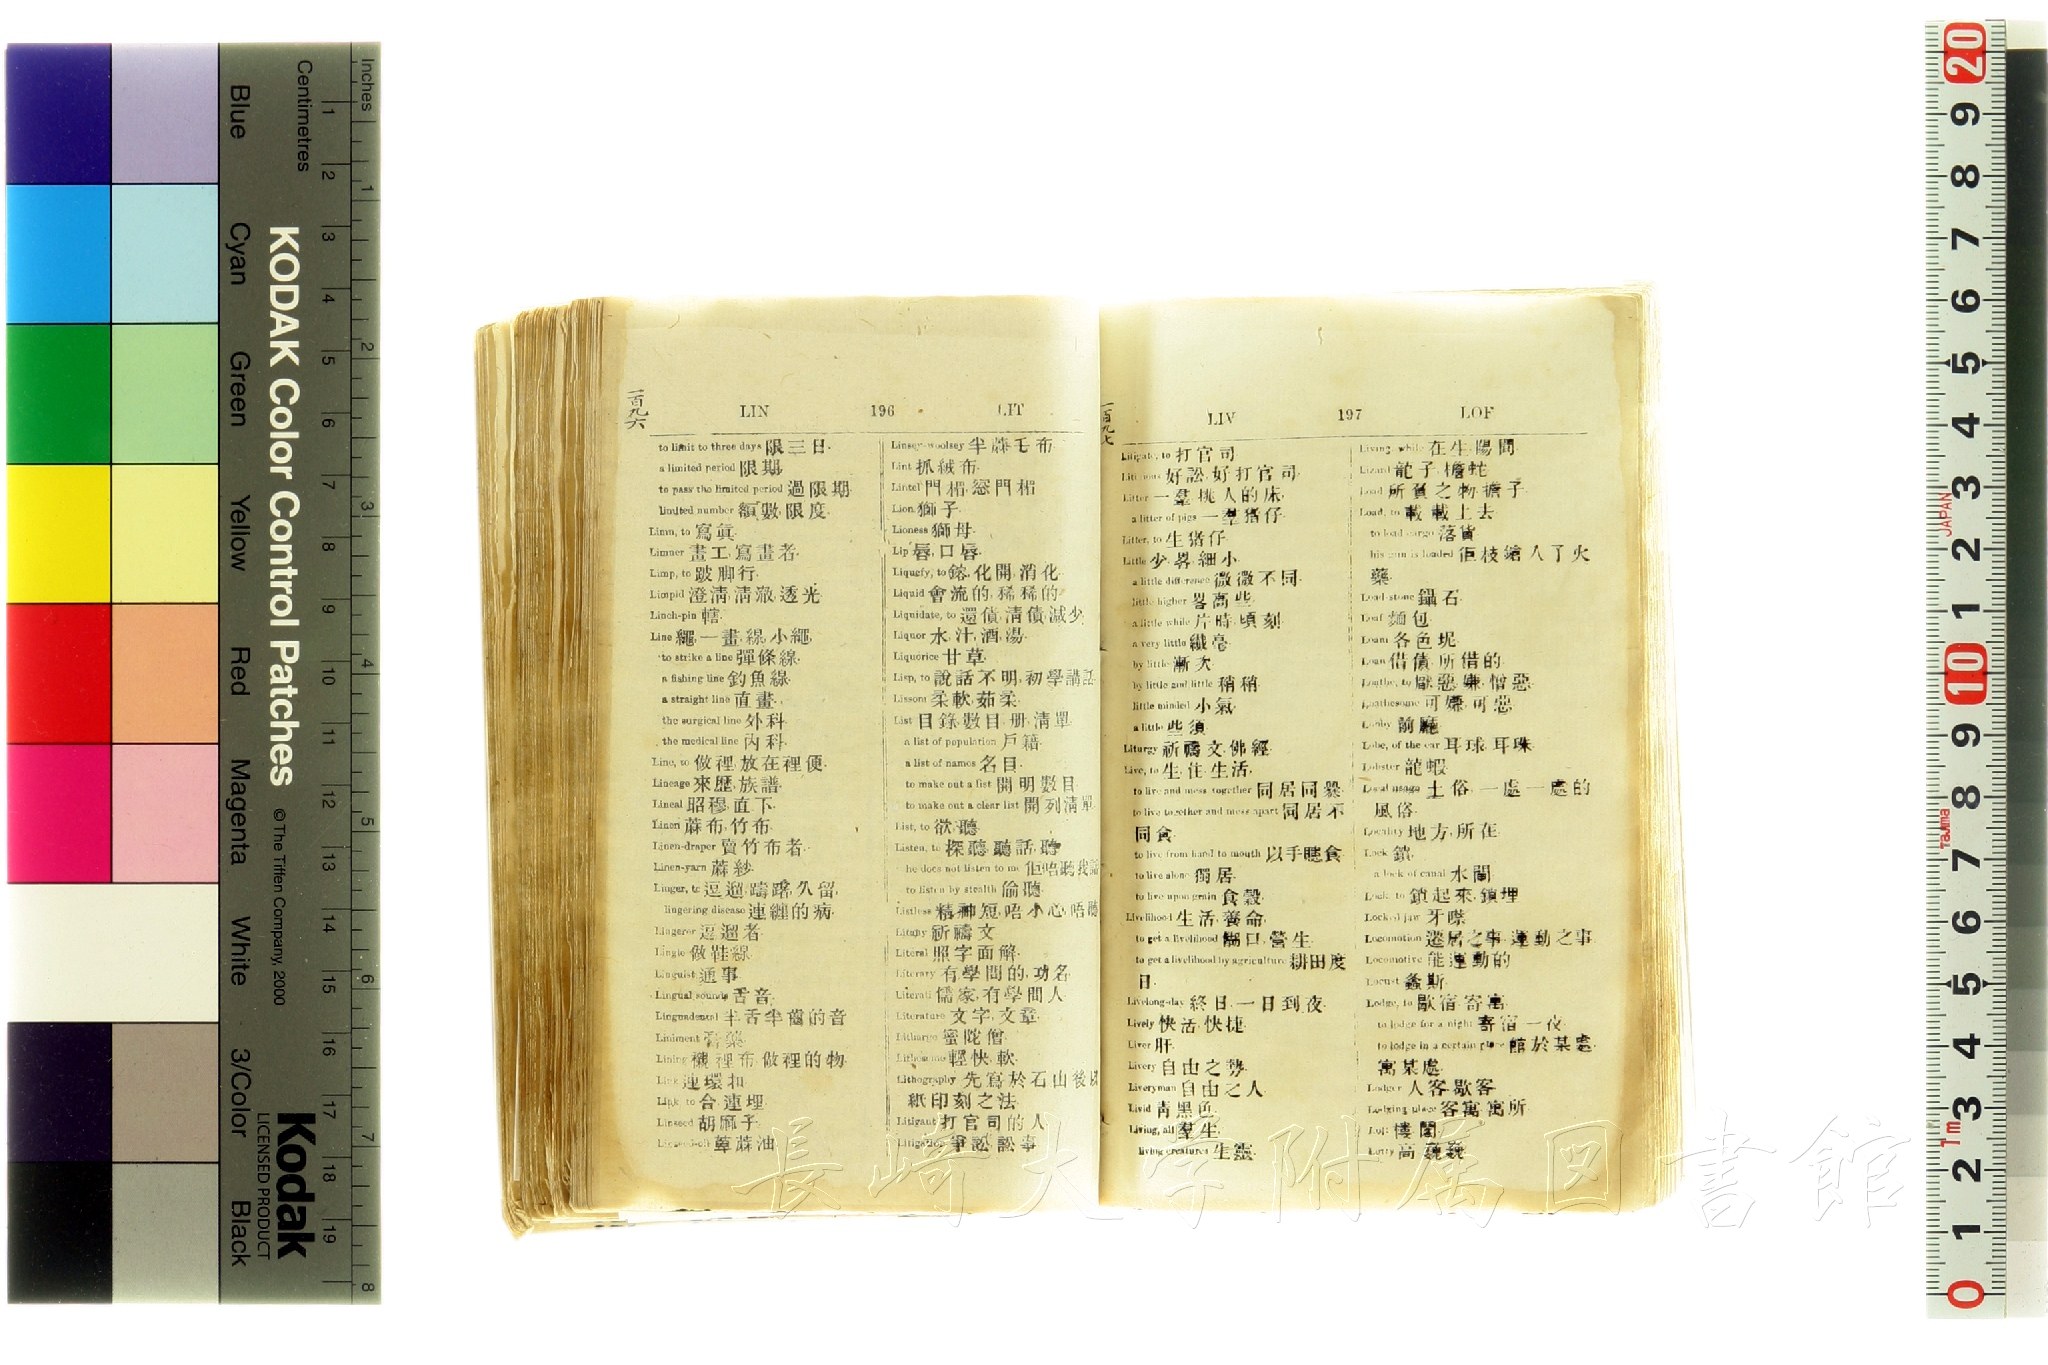 Inches
Centimetres
KODAK Color Control Patches
© The Tiffen Company, 2000
Kodak
LICENSED PRODUCT
Blue
Cyan
Green
Yellow
Red
Magenta
White
3/Color
Black
一百九六
LIN 196 LIT
to limit to three days 限三日
a limited period 限期
to pass the limited period 過限期
limited number 額數,限度
Limn, to 寫真
Limner 畫工,寫畫者
Limp, to 跛脚行
Limpid 澄清,清澈,透光
Linch-pin 轄
Line 繩,一畫,線,小繩
to strike a line 彈條線
a fishing line 釣魚線
a straight line 直畫
the surgical line 外科
the medical line 內科
Line, to 做裡,放在裡便
Lineage 來歷,族譜
Lineal 昭穆,直下
Linen 蔴布,竹布
Linen-draper 賣竹布者
Linen-yarn 蔴紗
Linger, to 逗遛,躊躇,久留
lingering disease 連纏的病
Lingerer 逗遛者
Lingle 做鞋線
Linguist 通事
Lingual sounds 舌音
Linguadental 半舌半齒的音
Liniment 膏藥
Lining 襯裡布,做裡的物
Link 連環扣
Link, to 合連埋
Linseed 胡麻子
蔴油
Linsey-woolsey 半蔴毛布
Lint 抓絨布
Lintel 門楣,窓門楣
Lion 獅子
Lioness 獅母
Lip 唇,口唇
Liquefy, to 鎔,化開,消化
Liquid 會流的,稀稀的
Liquidate, to 還債,清債,減少
Liquor 水,汁,酒,湯
Liquorice 甘草
Lisp, to 說話不明,初學講話
Lissom 柔軟,茹柔
List 目錄,數目,册,清單
a list of population 戶籍
a list of names 名目
to make out a list 開明數目
to make out a clear list 開列清單
List, to 欲,聽
Listen, to 探聽,聽話,聽
he does not listen to me 佢唔聽我
to listen by stealth 偷聽
Listless 精神短,唔小心,唔
Litany 祈禱文
Literal 照字面解
Literary 有學問的,功名
Literati 儒家,有學問人
Literature 文字,文章
Litharge 蜜陀僧
輕快,軟
Lithography 先寫於石山後
紙印刻之法
Litigant 打官司的人
Litigation 爭訟,訟事
一百九七
LIV 197 LOF
Litigate, to 打官司
Litigious 好訟,好打官司
Litter 一羣,挑人的床
a litter of pigs 一羣猪仔
Litter, to 生猪仔
Little 少,畧,細小
a little difference 微微不同
little higher 畧高些
a little while 片時,頃刻
a very little 纖毫
by little 漸次
by little and little 稍稍
little minded 小氣
a little 些須
Liturgy 祈禱文,佛經
Live, to 生,住,生活
to live and mess together 同居同爨
to live together and mess apart 同居不
同食
to live from hand to mouth 以手聽食
to live alone 獨居
to live upon grain 食穀
Livelihood 生活,養命
to get a livelihood 餬口,營生
to get a livelihood by agriculture 耕田度
日
Livelong-day 終日,一日到夜
Lively 快活,快捷
Liver 肝
Livery 自由之勢
Liveryman 自由之人
Livid 青黑色
Living, all 羣生
living creatures 生靈
Living, while 在生,陽間
Lizard 龍子,簷蛇
Load 所負之物,擔子
Load, to 載,載上去
to load cargo 落貨
his gun is loaded 佢枝鎗入了火
藥
Load-stone 鑷石
Loaf 麵包
Loam 各色坭
Loan 借債,所借的
Loathe, to 厭惡,嫌,憎惡
Loathesome 可嫌,可惡
Lobby 前廳
Lobe, of the ear 耳球,耳珠
Lobster 龍蝦
Local usage 土俗,一處一處的
風俗
Locality 地方,所在
Lock 鎖
a lock of canal 水閘
Lock, to 鎖起來,鎖埋
Locked jaw 牙噤
Locomotion 遷居之事,運動之事
Locomotive 能運動的
Locust 螽斯
Lodge, to 歇宿,寄寓
to lodge for a night 寄宿一夜
to lodge in a certain place 館於某處
寓某處
Lodger 人客,歇客
Lodging place 客寓,寓所
Loft 樓閣
Lofty 高,巍巍
長崎大学附属図書館
JAPAN
Tajima
1m